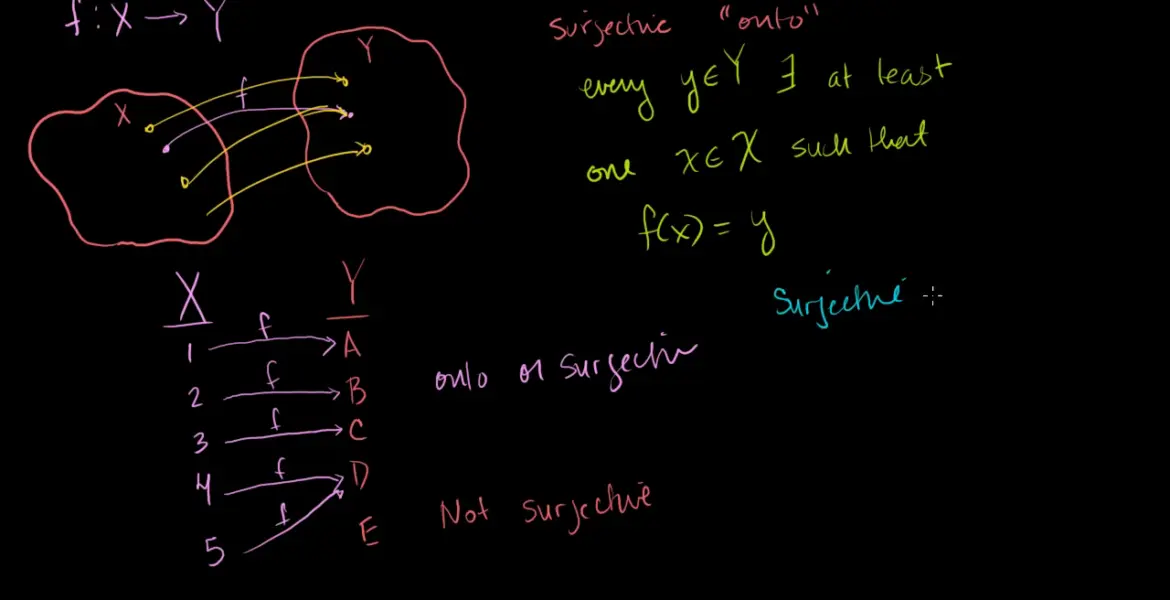 f : X → Y
surjective "onto"
Y
X
f
every y∈Y ∃ at least
one x∈X such that
f(x) = y
Surjective
X Y
1 f A
2 f B
3 f C
4 f D
5 f E
onto or surjective
Not surjective